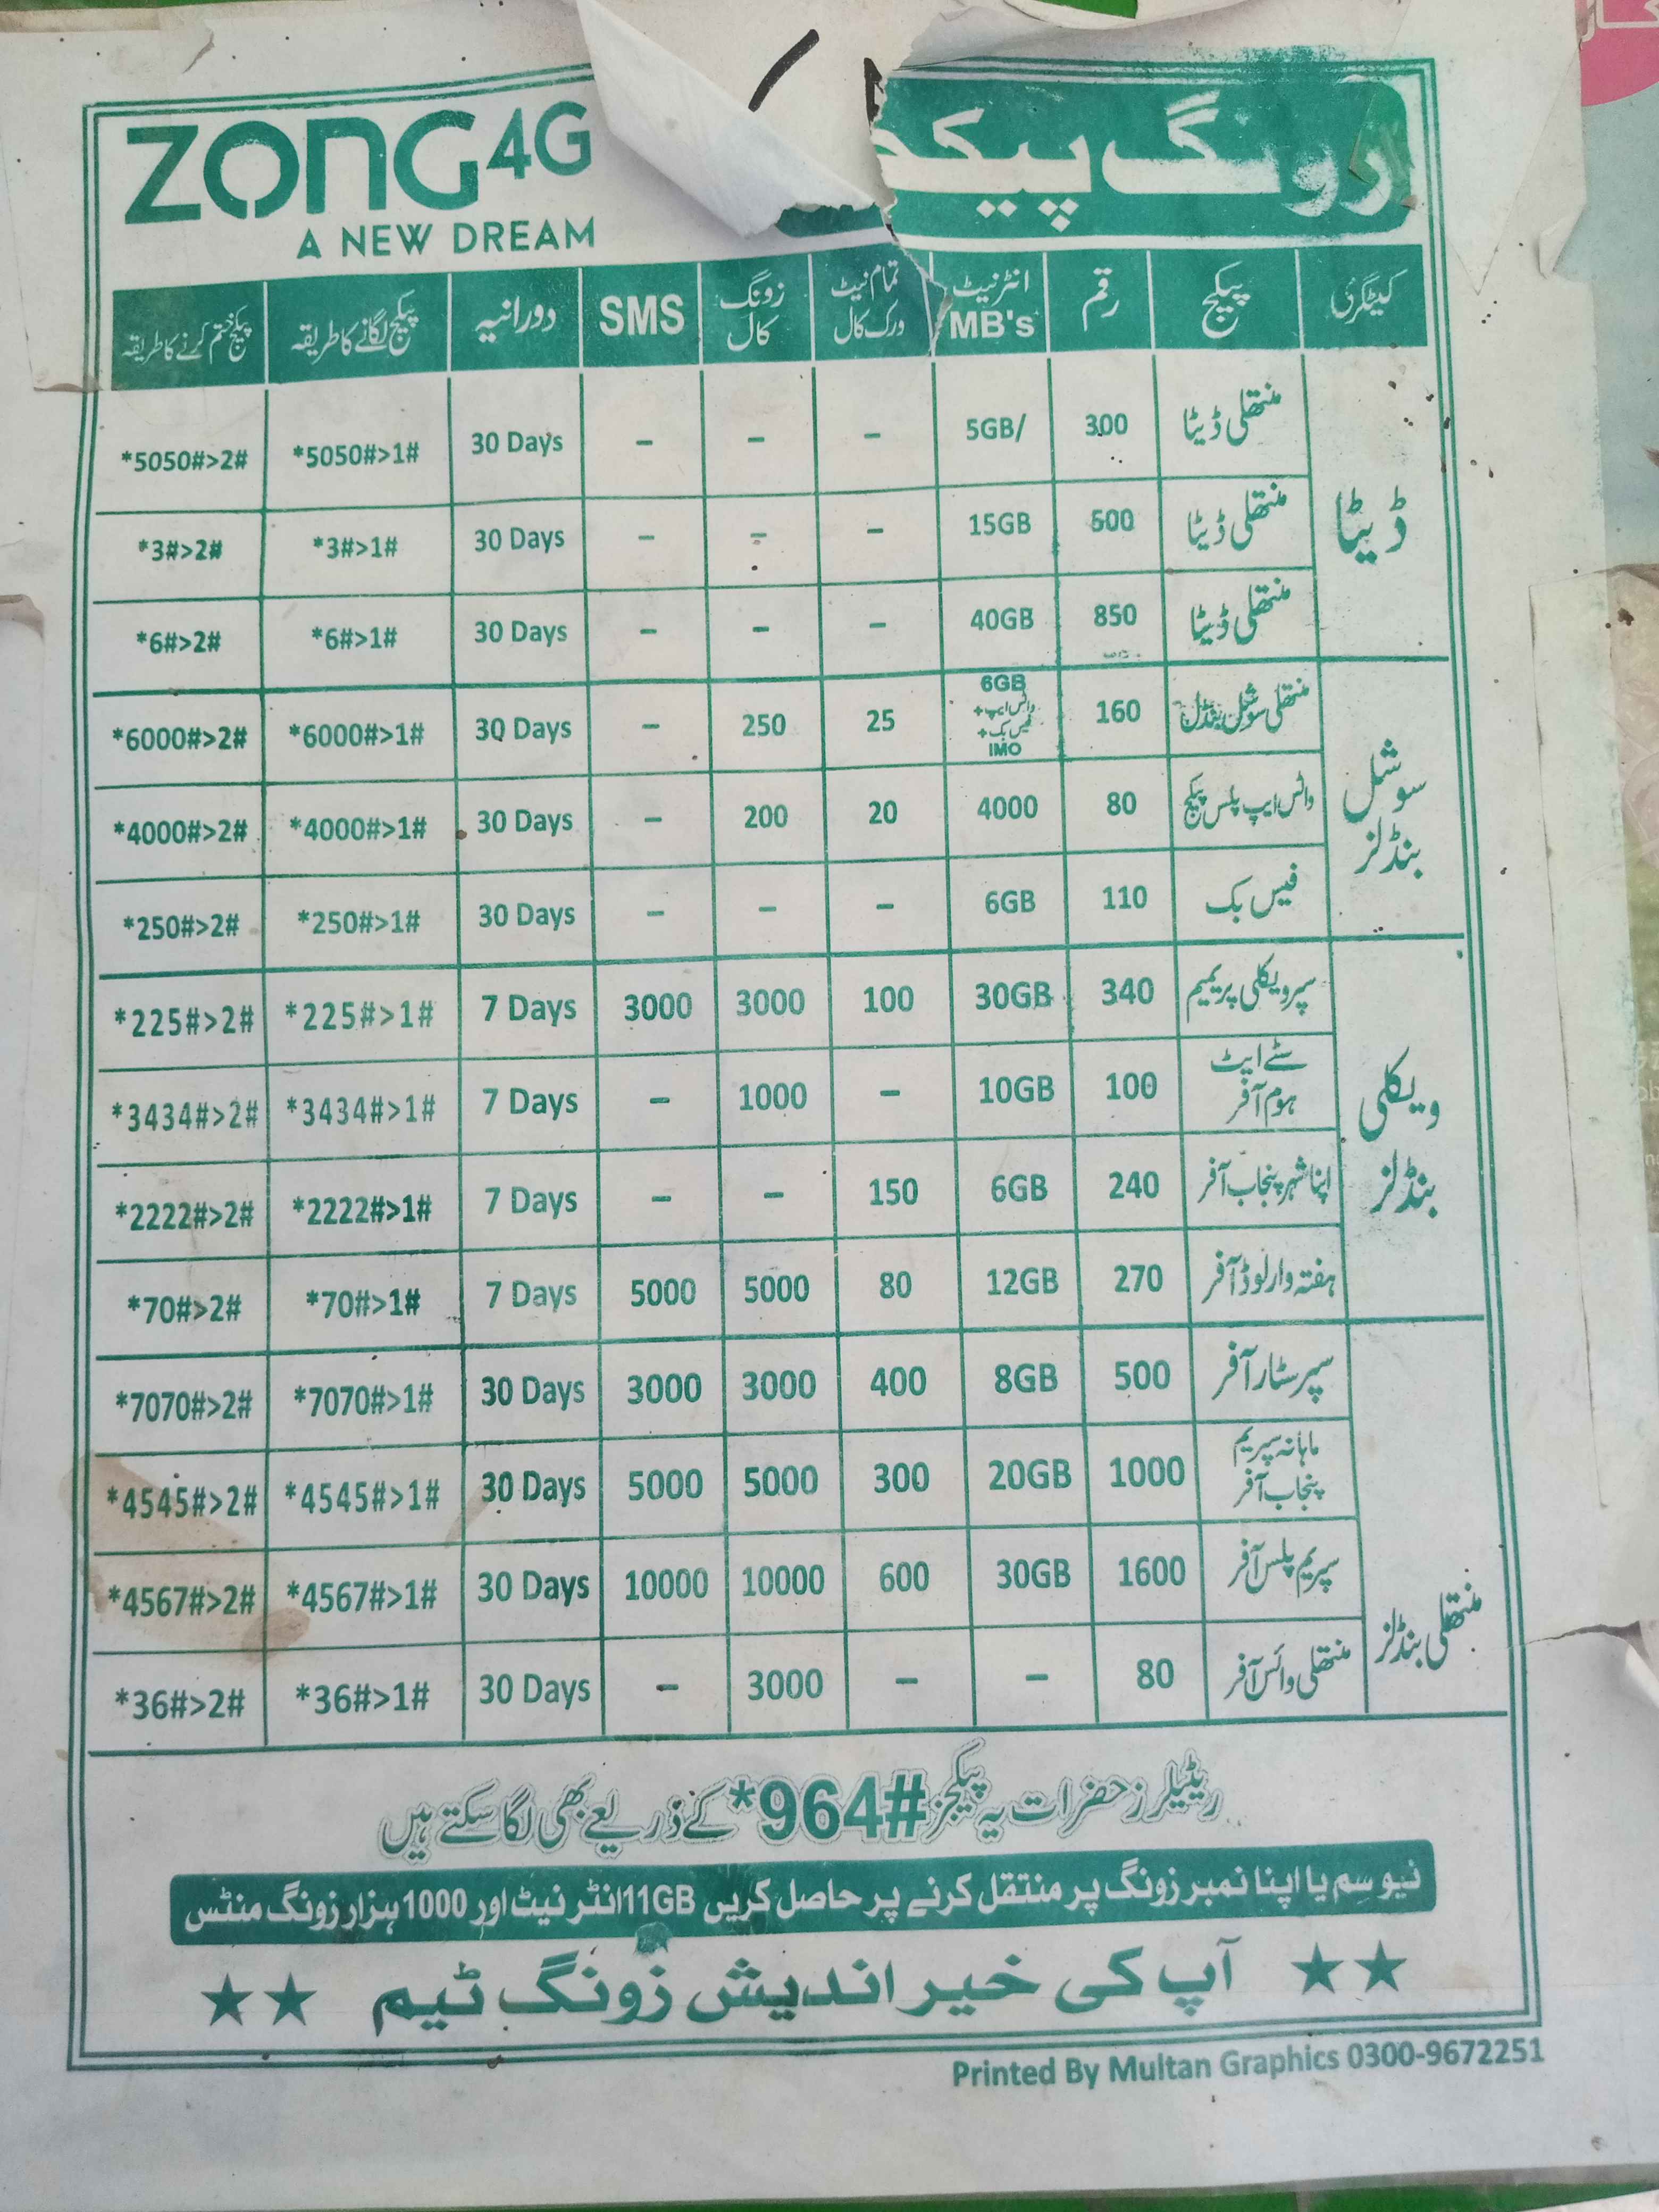 ZONG 4G
A NEW DREAM
زونگ
کیٹگری پیکج رقم انٹرنیٹ MB's تمام نیٹ ورک کال زونگ کال SMS دورانیہ پیکج لگانے کا طریقہ پیکج ختم کرنے کا طریقہ
ڈیٹا
منتھلی ڈیٹا 300 5GB/ – – – 30 Days *5050#>1# *5050#>2#
منتھلی ڈیٹا 500 15GB – – – 30 Days *3#>1# *3#>2#
منتھلی ڈیٹا 850 40GB – – – 30 Days *6#>1# *6#>2#
سوشل بنڈلز
منتھلی سوشل بنڈل 160 6GB واٹس ایپ+ فیس بک+ IMO 25 250 – 30 Days *6000#>1# *6000#>2#
واٹس ایپ پلس پیکج 80 4000 20 200 – 30 Days *4000#>1# *4000#>2#
فیس بک 110 6GB – – – 30 Days *250#>1# *250#>2#
ویکلی بنڈلز
سپر ویکلی پریمیم 340 30GB 100 3000 3000 7 Days *225#>1# *225#>2#
سٹے ایٹ ہوم آفر 100 10GB – 1000 – 7 Days *3434#>1# *3434#>2#
اپنا شہر پنجاب آفر 240 6GB 150 – – 7 Days *2222#>1# *2222#>2#
ہفتہ وار لوڈ آفر 270 12GB 80 5000 5000 7 Days *70#>1# *70#>2#
منتھلی بنڈلز
سپر سٹار آفر 500 8GB 400 3000 3000 30 Days *7070#>1# *7070#>2#
ماہانہ سپریم پنجاب آفر 1000 20GB 300 5000 5000 30 Days *4545#>1# *4545#>2#
سپریم پلس آفر 1600 30GB 600 10000 10000 30 Days *4567#>1# *4567#>2#
منتھلی وائس آفر 80 – – 3000 – 30 Days *36#>1# *36#>2#
ریٹیلرز حضرات یہ پیکجز *964# کے ذریعے بھی لگا سکتے ہیں
نیو سِم یا اپنا نمبر زونگ پر منتقل کرنے پر حاصل کریں 11GB انٹر نیٹ اور 1000 ہزار زونگ منٹس
آپ کی خیر اندیش زونگ ٹیم
Printed By Multan Graphics 0300-9672251